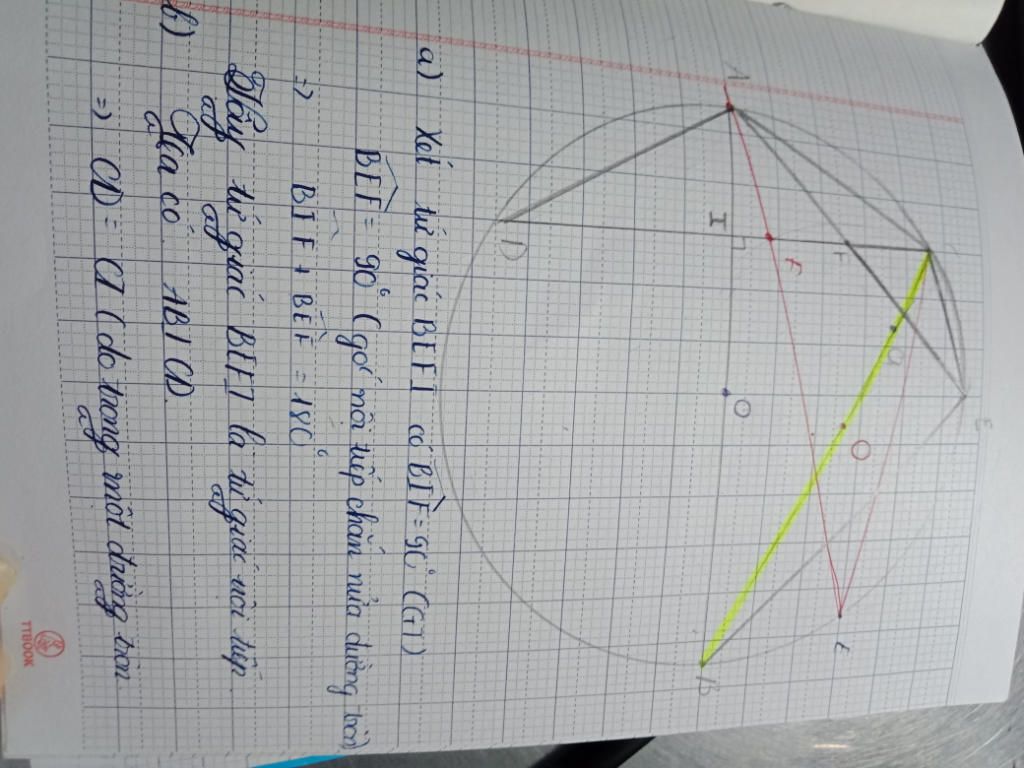 A
D
I
F
F
C
O
O
E
E
B
a) Xét tứ giác BEFI có BIF = 90° (GT)
BEF = 90° (góc nội tiếp chắn nửa đường tròn)
=> BIF + BEF = 180°
Vậy tứ giác BEFI là tứ giác nội tiếp
b) Ta có AB ⊥ CD
=> CD = CI (do trong một đường tròn
TTBOOK